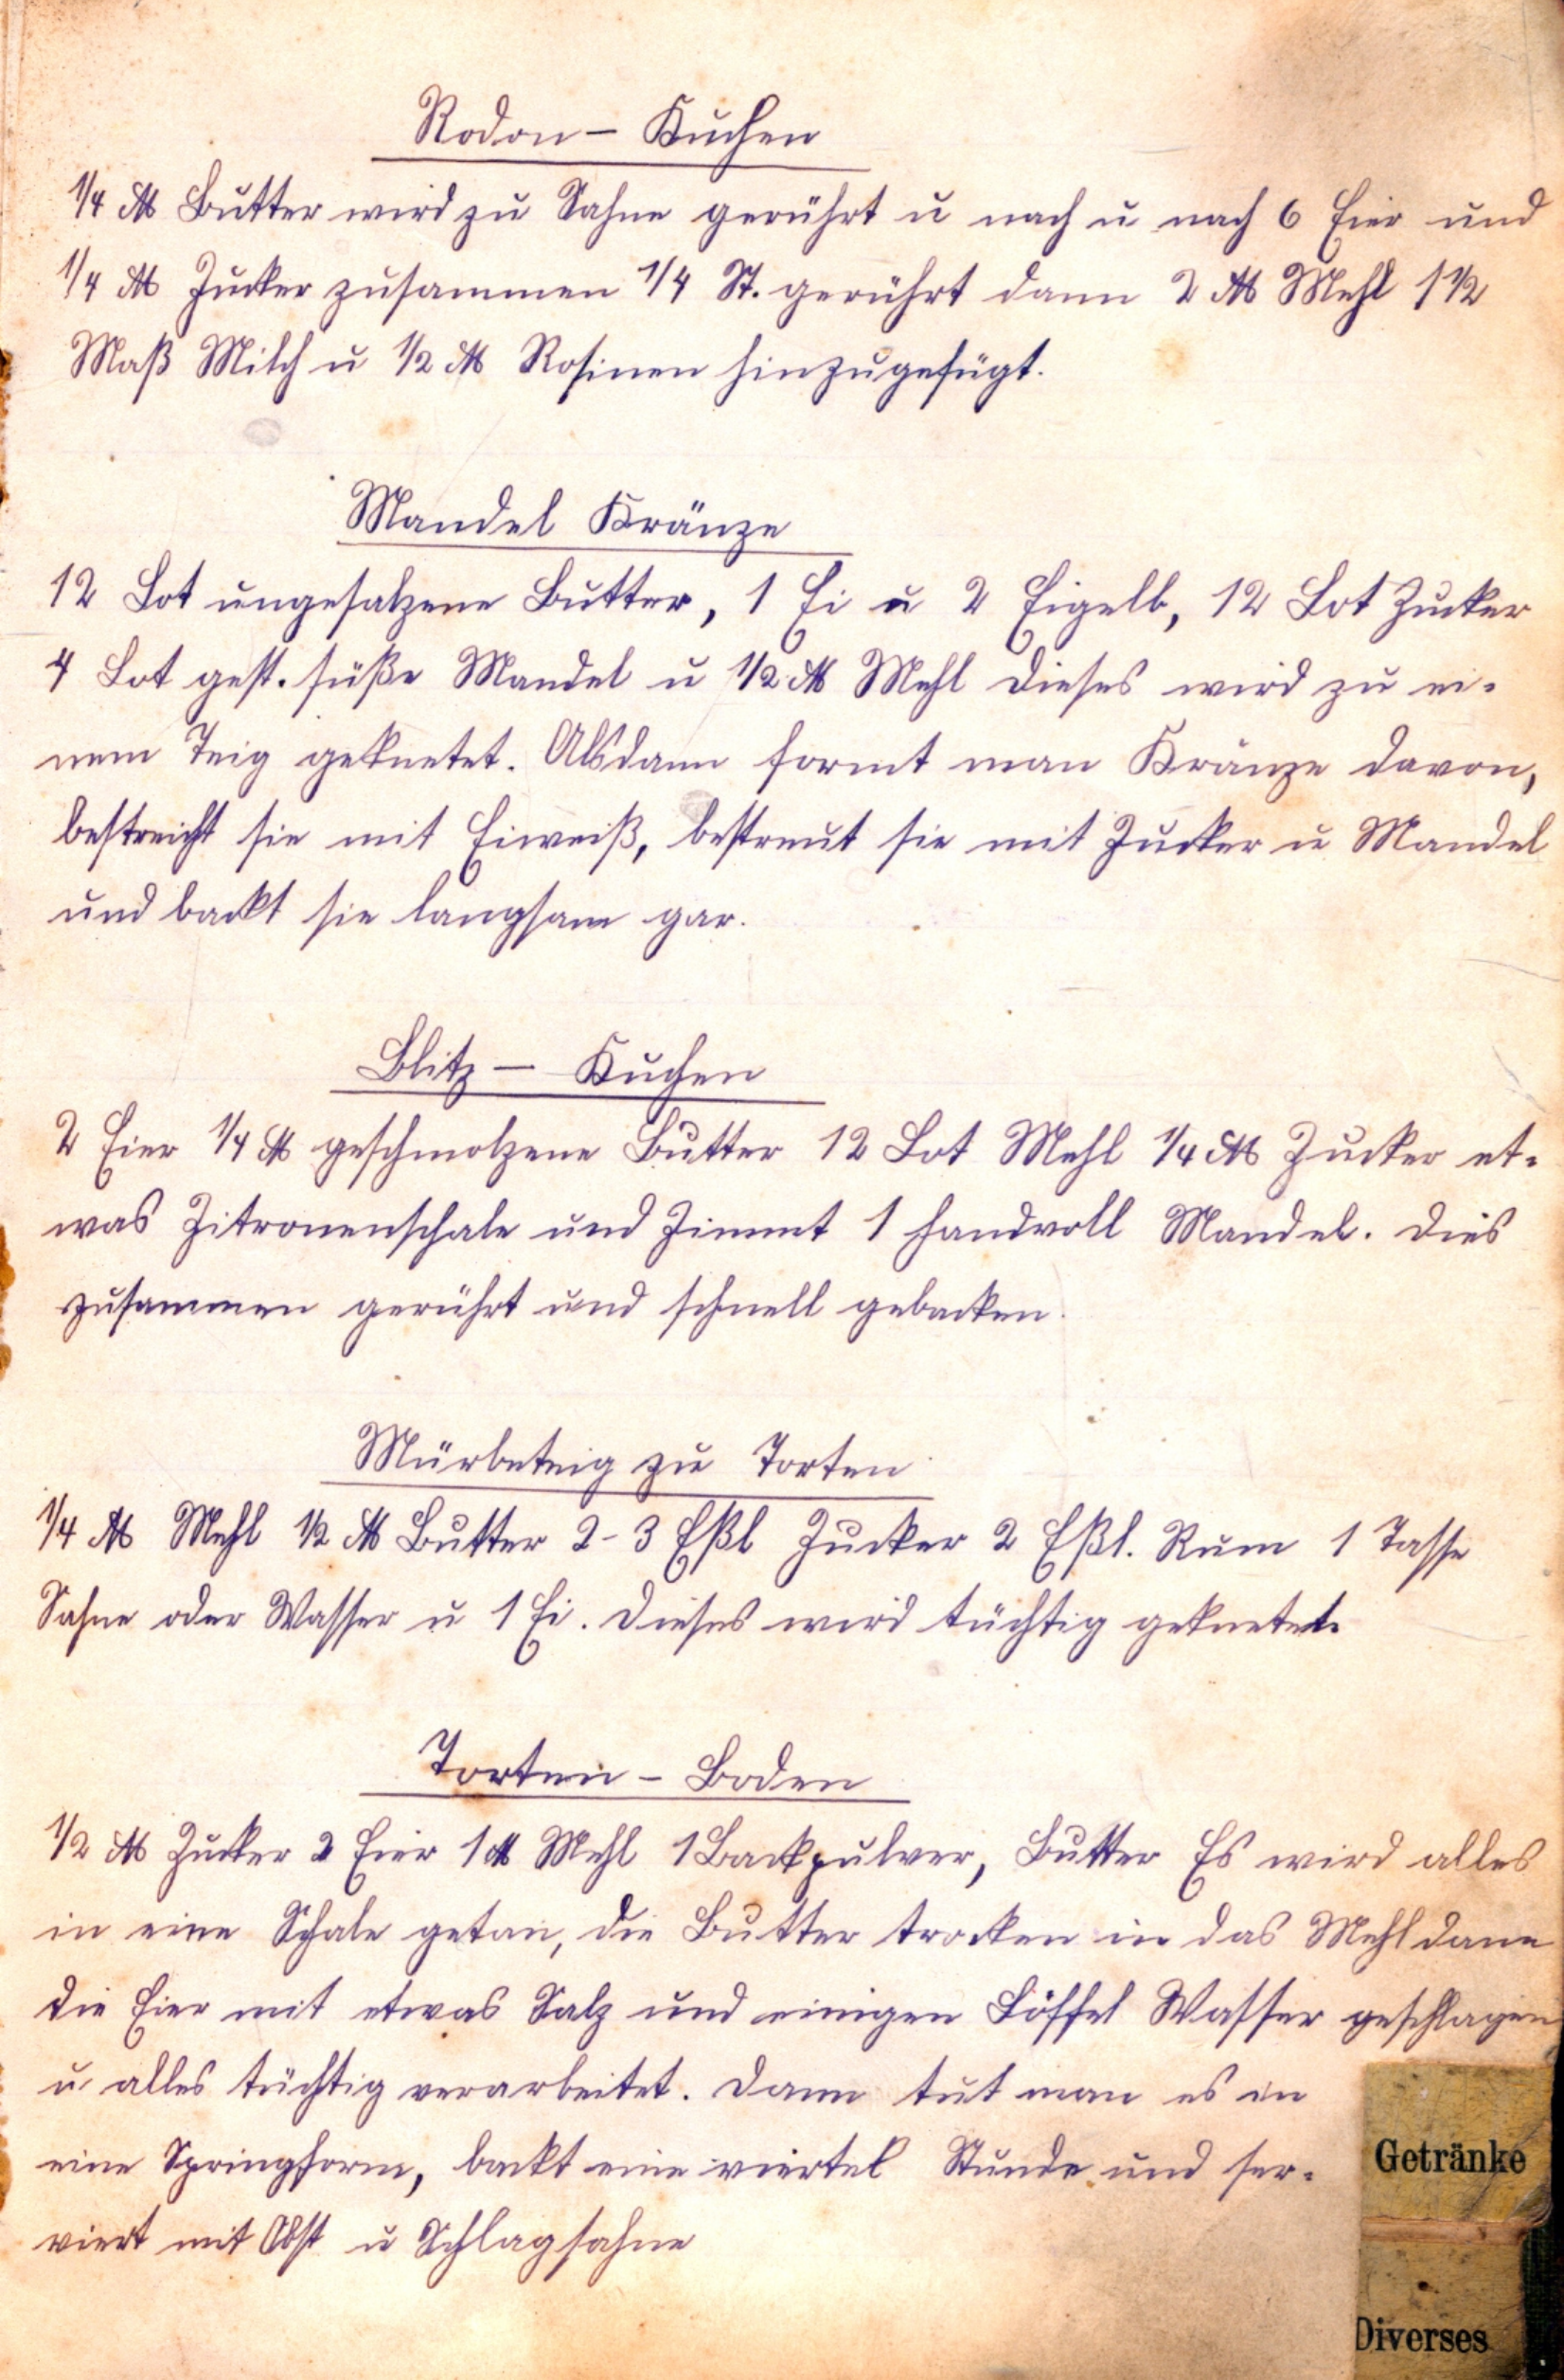 Rodon – Kuchen
1/4 ℔ Butter wird zu Sahne gerührt u nach u nach 6 Eier und
1/4 ℔ Zucker zusammen 1/4 St. gerührt dann 2 ℔ Mehl 1 1/2
Maß Milch u 1/2 ℔ Rosinen hinzugefügt.
Mandel Kränze
12 Lot ungesalzene Butter, 1 Ei u 2 Eigelb, 12 Lot Zucker
4 Lot gest. süße Mandel u 1/2 ℔ Mehl dieses wird zu ei-
nem Teig geknetet. Alsdann formt man Kränze davon,
bestreicht sie mit Eiweiß, bestreut sie mit Zucker u Mandel
und backt sie langsam gar.
Blitz – Kuchen
2 Eier 1/4 ℔ geschmolzene Butter 12 Lot Mehl 1/4 ℔ Zucker et-
was Zitronenschale und Zimmt 1 Handvoll Mandel. Dies
zusammen gerührt und schnell gebacken.
Mürbeteig zu Torten
1/4 ℔ Mehl 1/2 ℔ Butter 2-3 Eßl Zucker 2 Eßl. Rum 1 Tasse
Sahne oder Wasser u 1 Ei. Dieses wird tüchtig geknetet.
Torten – Boden
1/2 ℔ Zucker 2 Eier 1 ℔ Mehl 1 Backpulver, Butter Es wird alles
in eine Schale getan, die Butter trocken in das Mehl dann
die Eier mit etwas Salz und einigen Löffel Wasser geschlagen
u alles tüchtig verarbeitet. Dann tut man es in
eine Springform, backt eine viertel Stunde und ser-
viert mit Obst u Schlagsahne
Getränke
Diverses